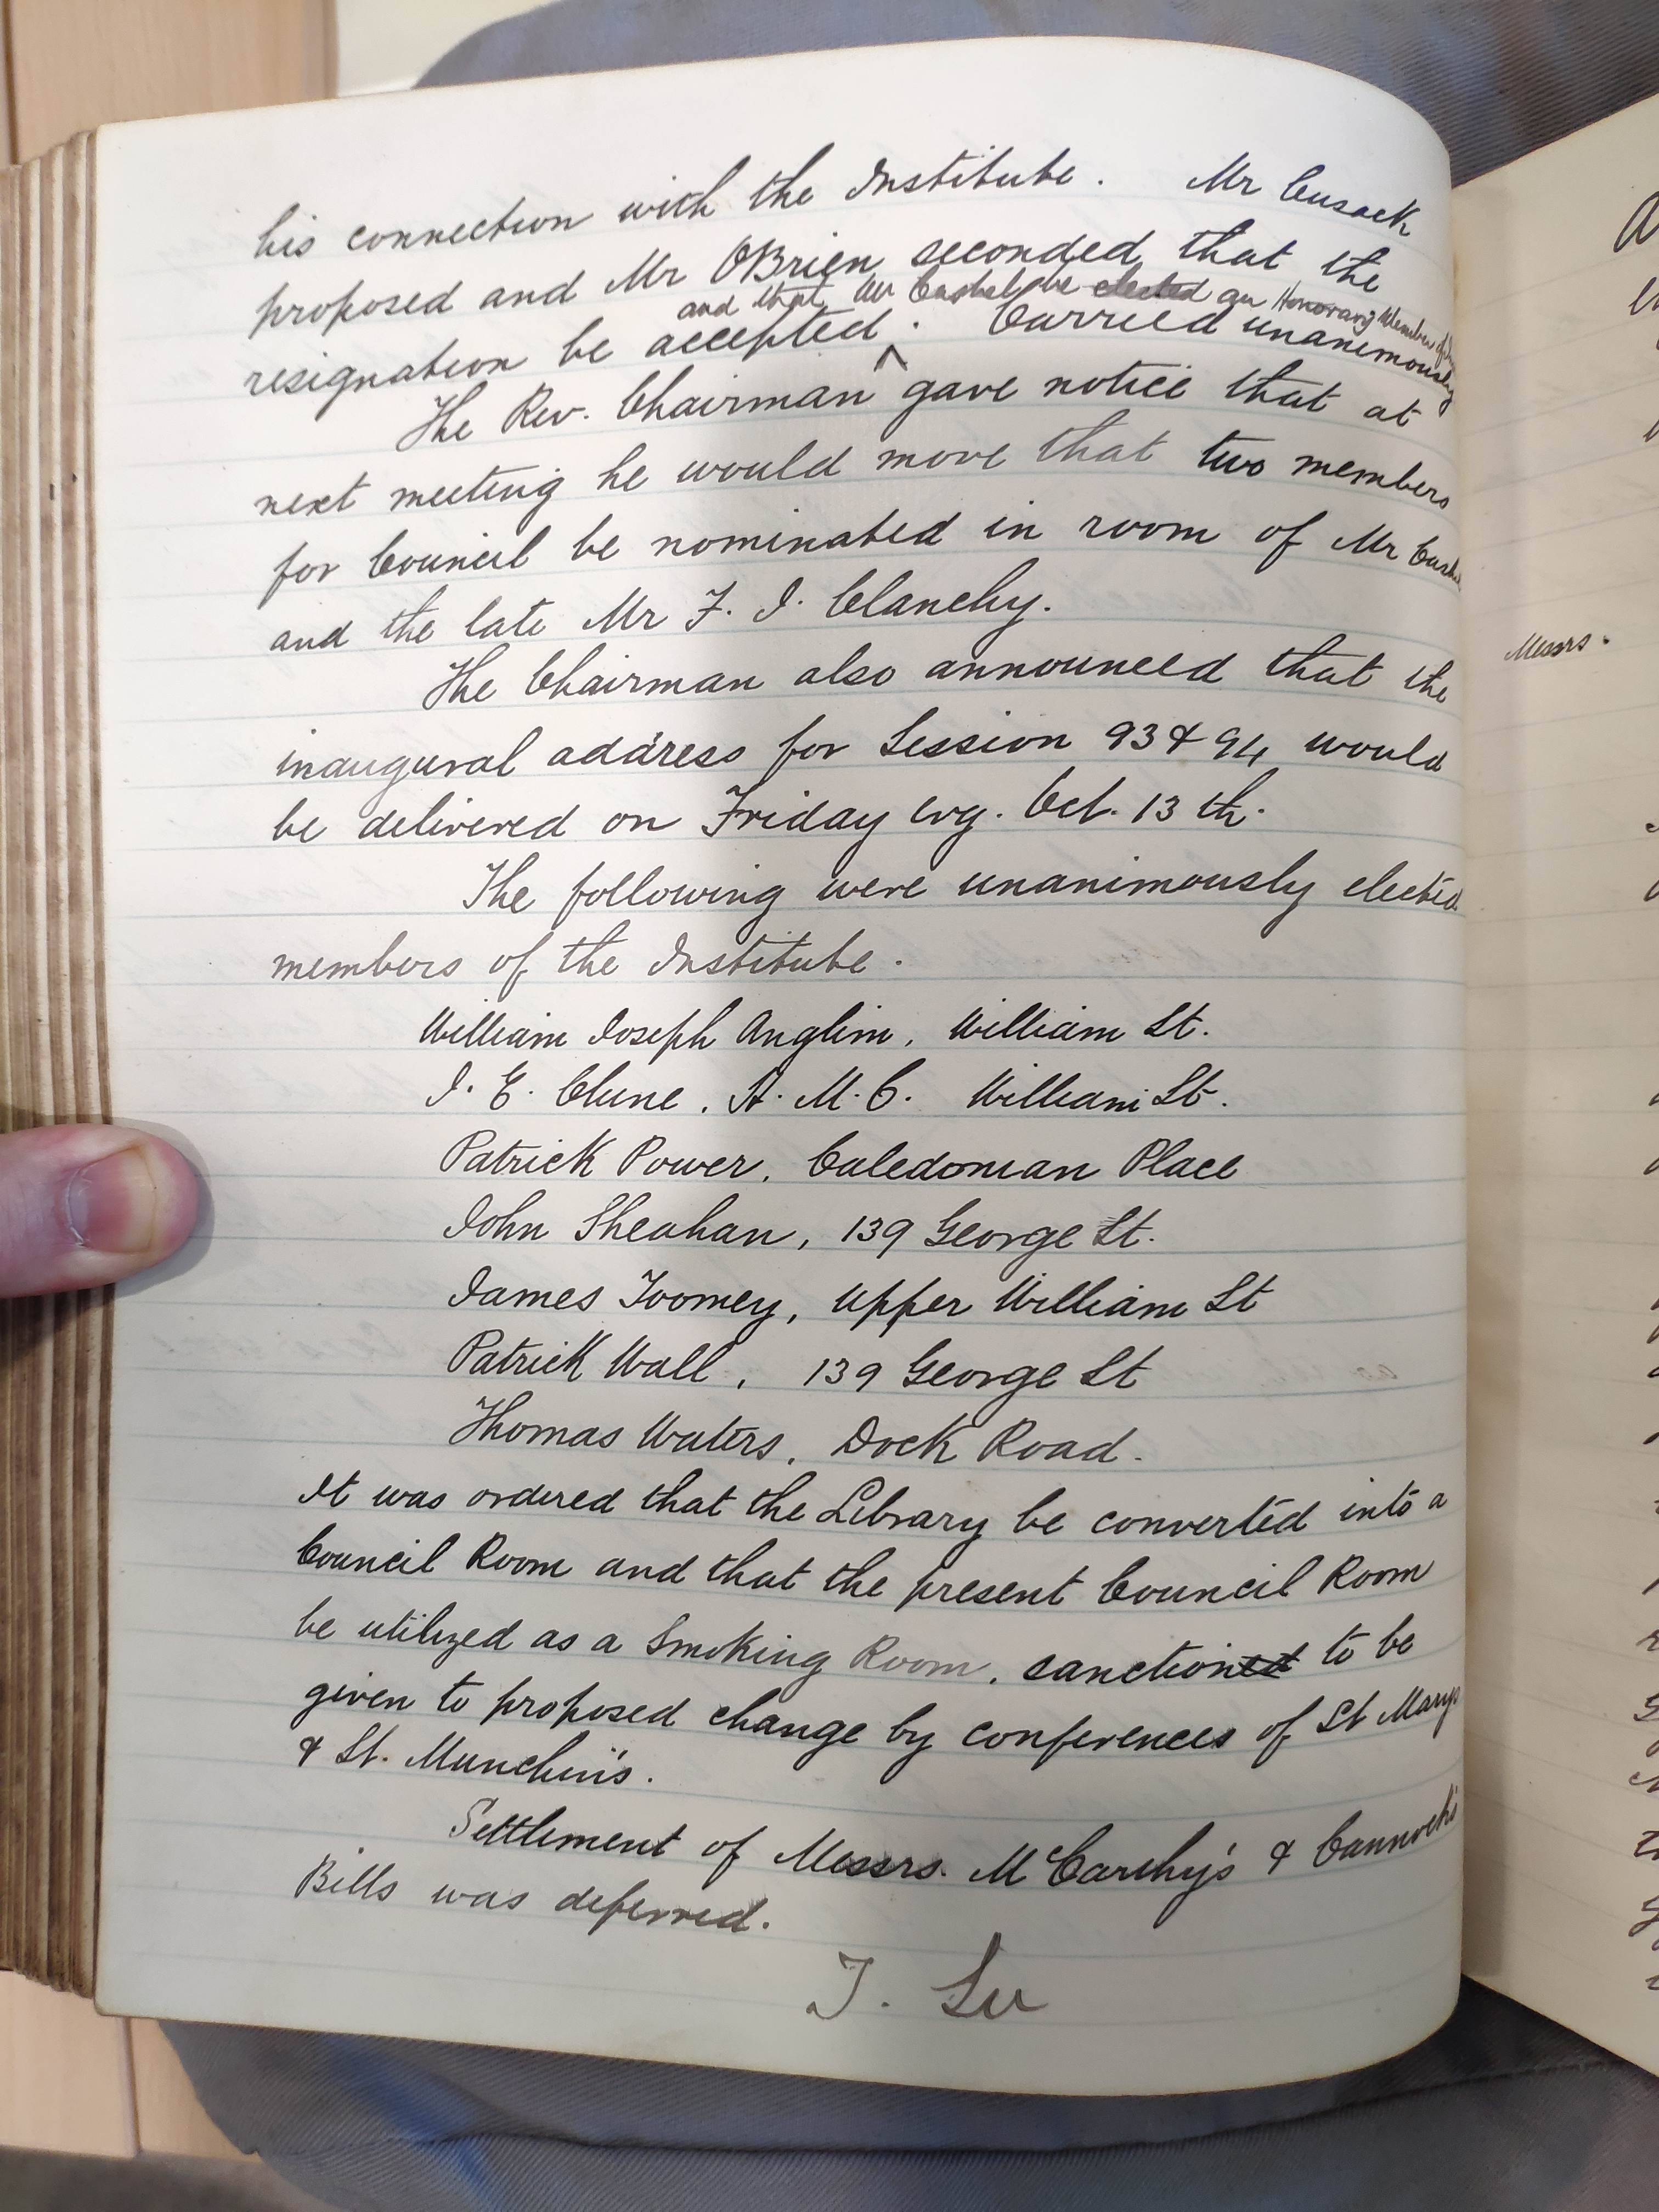 his connection with the Institute. Mr Cusack
proposed and Mr OBrien seconded that the
and that Mr Cashel be elected an Honorary Member of
resignation be accepted ^. Carried unanimously
The Rev. Chairman gave notice that at
next meeting he would move that two members
for Council be nominated in room of Mr Cashel
and the late Mr F. J. Clanchy.
The Chairman also announced that the
inaugural address for Session 93 & 94 would
be delivered on Friday evg. Oct. 13 th.
The following were unanimously elected
members of the Institute.
William Joseph Anglim, William St.
J. E. Clune, A. M. C. William St.
Patrick Power, Caledonian Place
John Sheahan, 139 George St.
James Toomey, upper William St
Patrick Wall, 139 George St
Thomas Waters, Dock Road.
It was ordered that the Library be converted into a
Council Room and that the present Council Room
be utilized as a Smoking Room, sanctioned to be
given to proposed change by conferences of St Marys
& St. Munchin's.
Settlement of Messrs. McCarthy's & Cannock's
Bills was deferred.
T. Lee
Messrs.